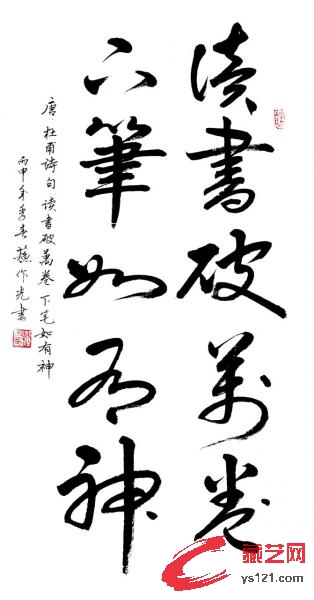 讀書破萬卷
下筆如有神
唐 杜甫詩句 读書破萬卷 下笔如有神
丙申年季春 蘇作光書
藏艺网
ys121.com